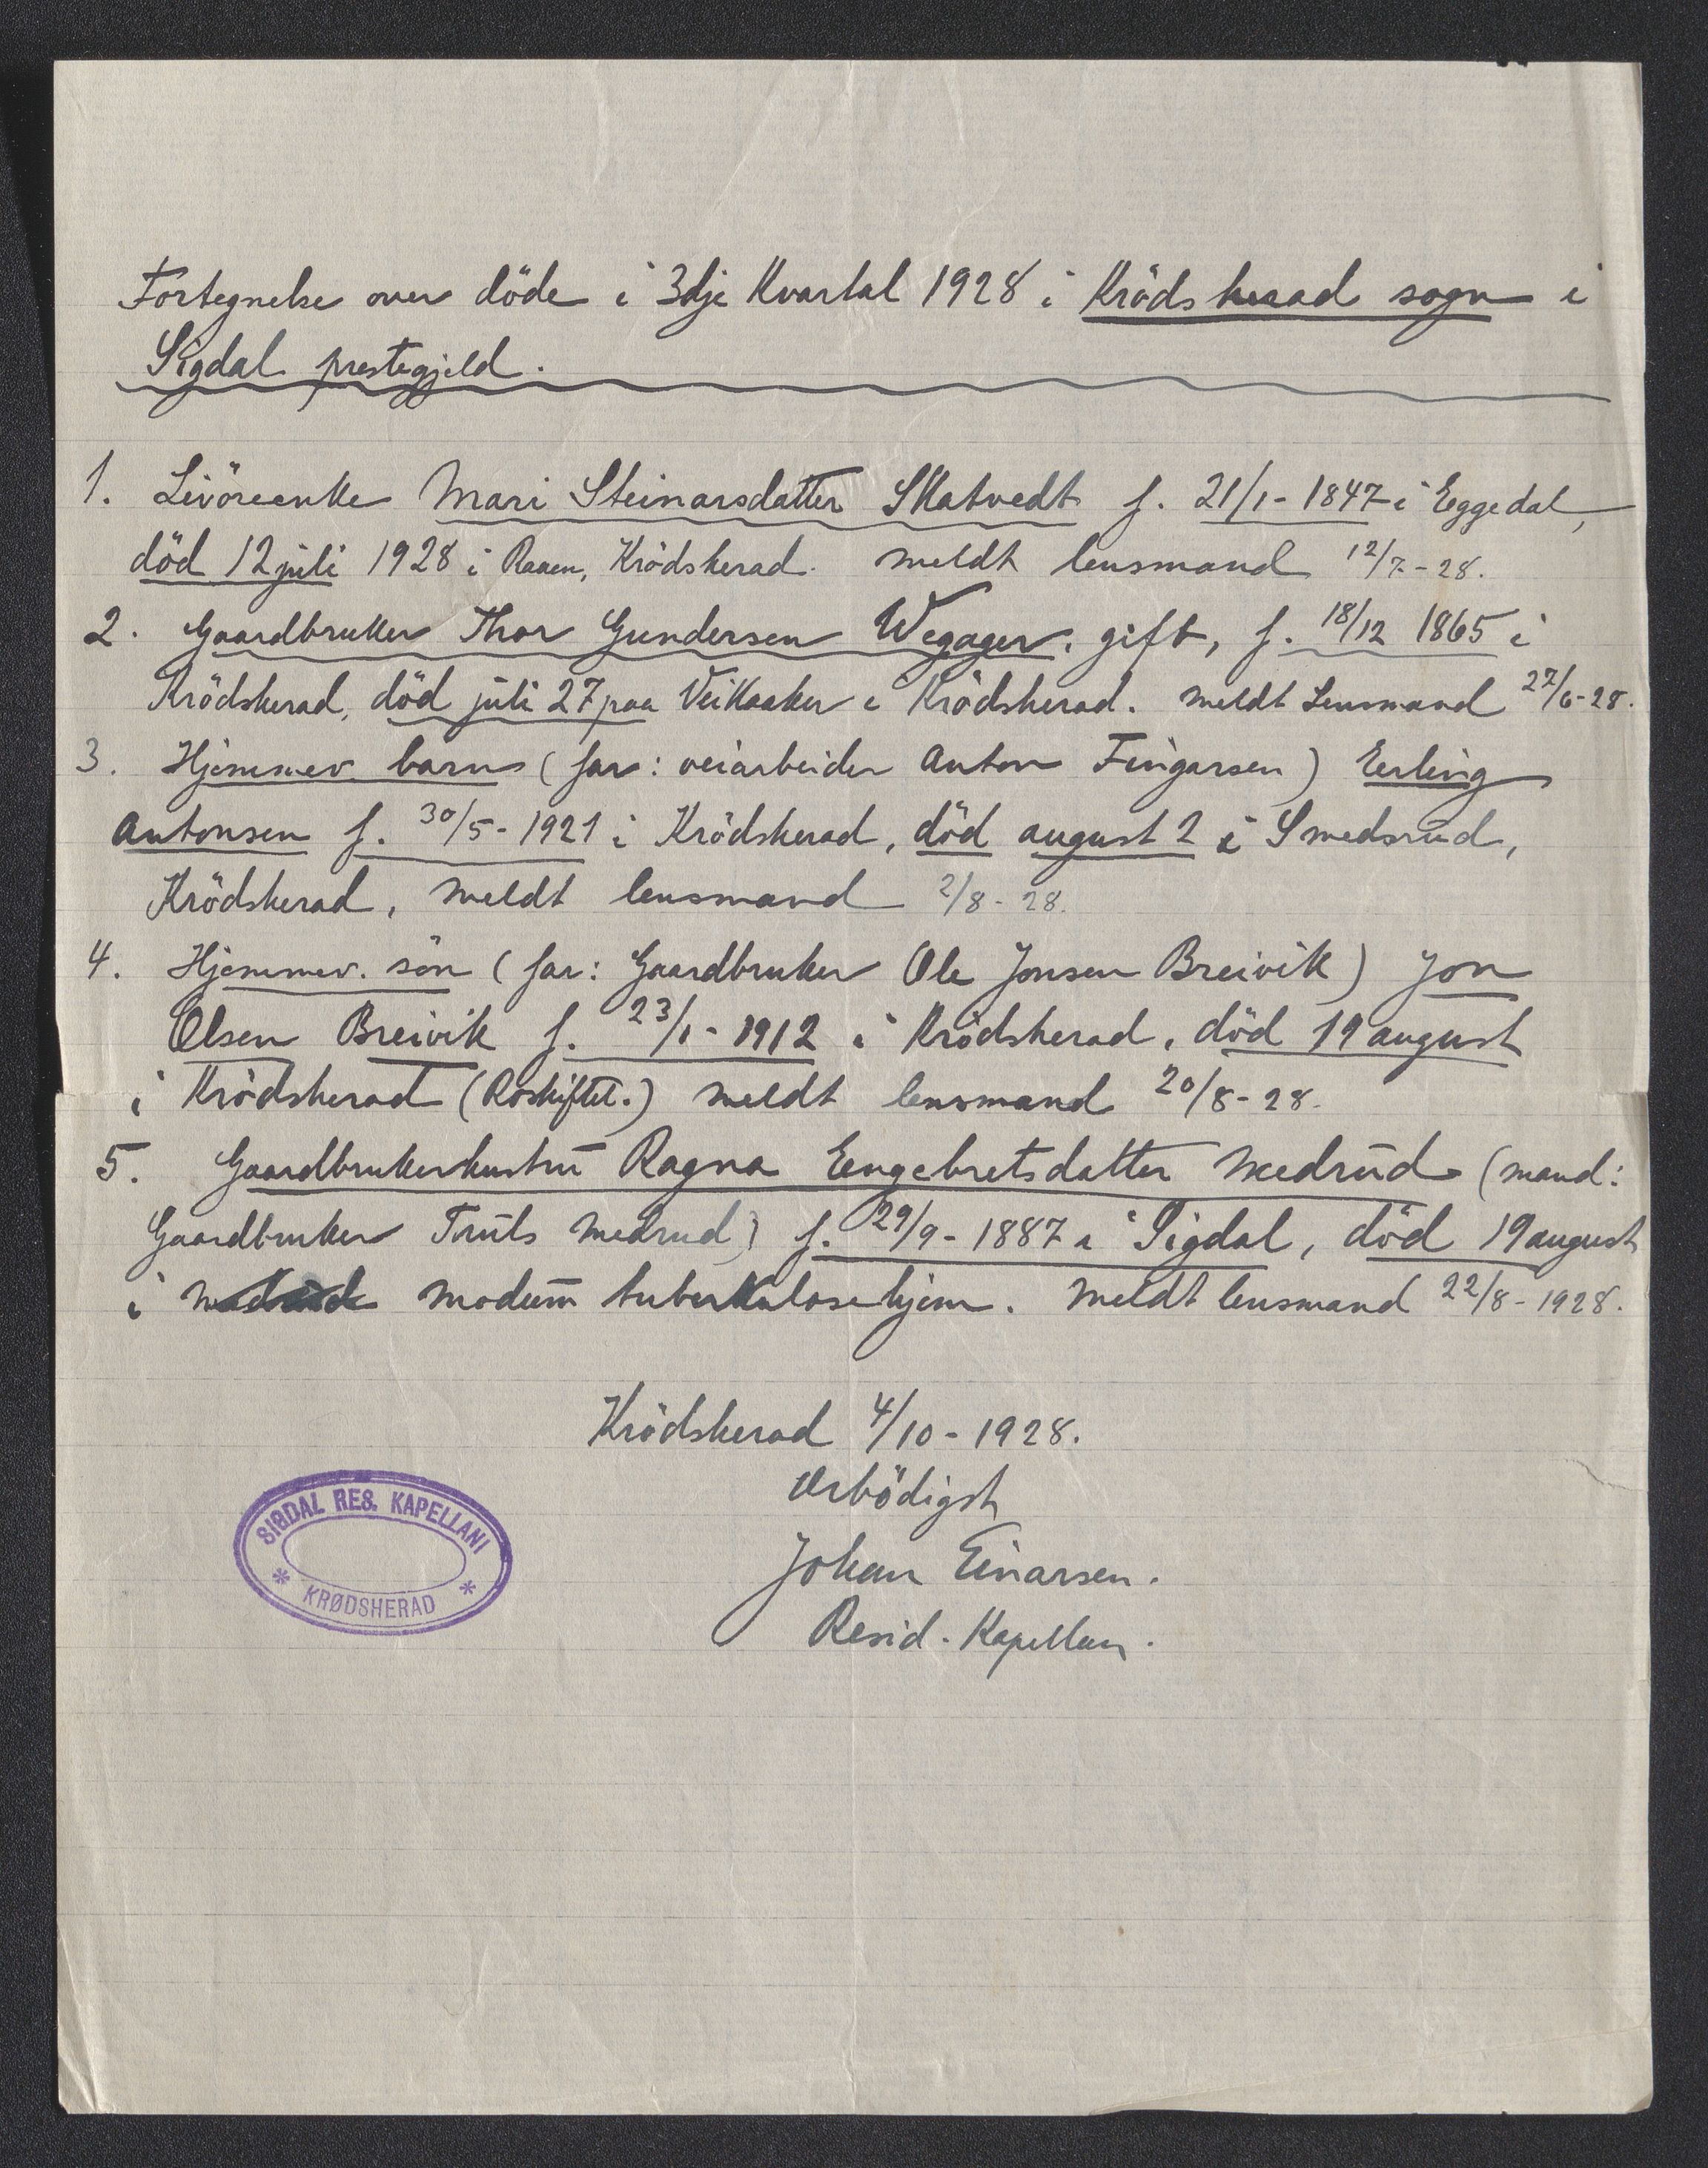 Fortegnelse over döde i 3dje Kvartal 1928 i Krödsherad sogn i
Sigdal prestegjeld.
1. Livöreenke Mari Steinarsdatter Skatvedt f. 21/1 - 1847 i Eggedal,
död 12 juli 1928 i Raaen, Krödsherad. meldt lensmand 12/7 - 28.
2. Gaardbruker Thor Gundersen Wegager, gift, f. 18/12 1865 i
Krödsherad, död juli 27 paa Veikaaker i Krödsherad. meldt Lensmand 27/6 - 28.
3. Hjemmev. barn (far: veiarbeider Anton Fingarsen) Erling
Antonsen f. 30/5 - 1921 i Krödsherad, död august 2 i Smedsrud,
Krödsherad, meldt lensmand 2/8 - 28.
4. Hjemmev. sön (far: Gaardbruker Ole Jonsen Breivik) Jon
Olsen Breivik f. 23/1 - 1912 i Krödsherad, död 19 august
i Krödsherad (Roskiftet.) meldt lensmand 20/8 - 28.
5. Gaardbrukerhustru Ragna Engebretsdatter Medrud (mand:
Gaardbruker Truls Medrud) f. 29/9 - 1887 i Sigdal, död 19 august
i Modum tuberkulosehjem. Meldt lensmand 22/8 - 1928.
Krödsherad 4/10 - 1928.
Ærbödigst
Johan Einarsen.
Resid. Kapellan.
SIGDAL RES. KAPELLANI
* KRØDSHERAD *